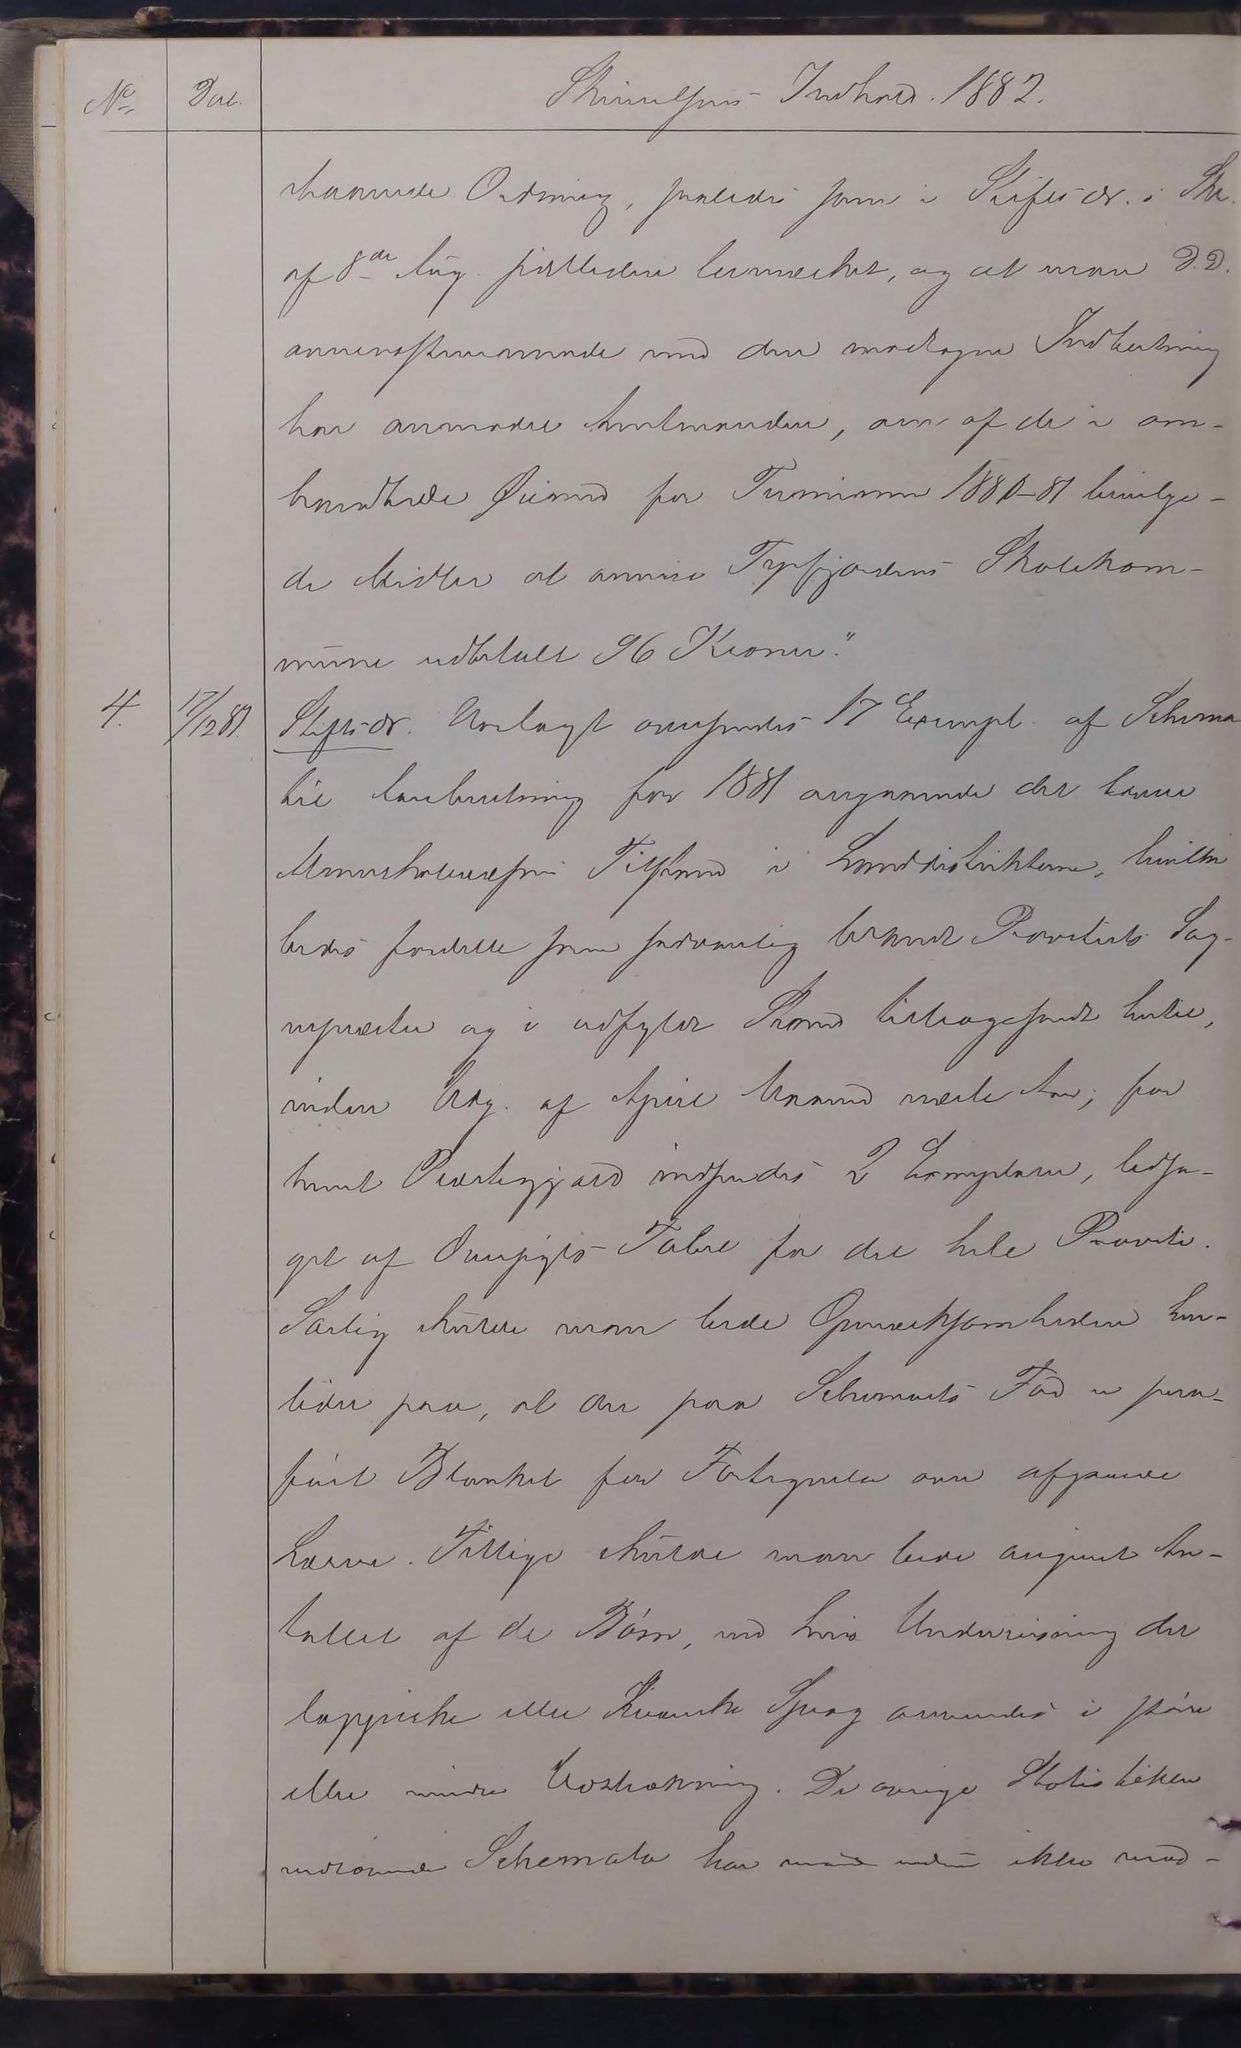 No Dat. Skrivelsens Indhold. 1882.
Ordning, saaledes som i Stifts-dr. i Skr.
af 8de Aug. sidstleden bemærket, og at man D.D.
overensstemmende med den modtagne Indberetning
har anmodet Amtmanden, om af de i om-
handlede Øiemed for Terminen 1880-81 bevilge-
de Midler at anvise Tysfjordens Skolekom-
mune udbetalt 96 Kroner."
4. 17/12 81. Stifts-dr. Vedlagt oversendes 17 Exempl. af Schema
til Indberetning for 1881 angaaende det lavere
Almueskolevæsens Tilstand i Landdistrikterne, hvilke
bedes fordelte som sædvanlig blandt Provstiets Sog-
nepræster og i udfyldt Stand tilbagesendt hertil,
inden Udg. af April Maaned næste Aar; for
hvert Præstegjæld indsendes 2 Exemplarer, ledsa-
get af Oversigts-Tabel for det hele Provsti.
Særlig skulde man bede Opmærksomheden hen-
ledet paa, at der paa Schemaets Fod er paa-
ført Blanket for Fortegnelse over afgaaede
Lærere. Tillige skulde man bede angivet An-
tallet af de Børn, ved hvis Undervisning det
lappiske eller Kvænske Sprog anvendes i større
eller mindre Udstrækning. De øvrige Statistiken
vedrørende Schemata har man endnu ikke mod-